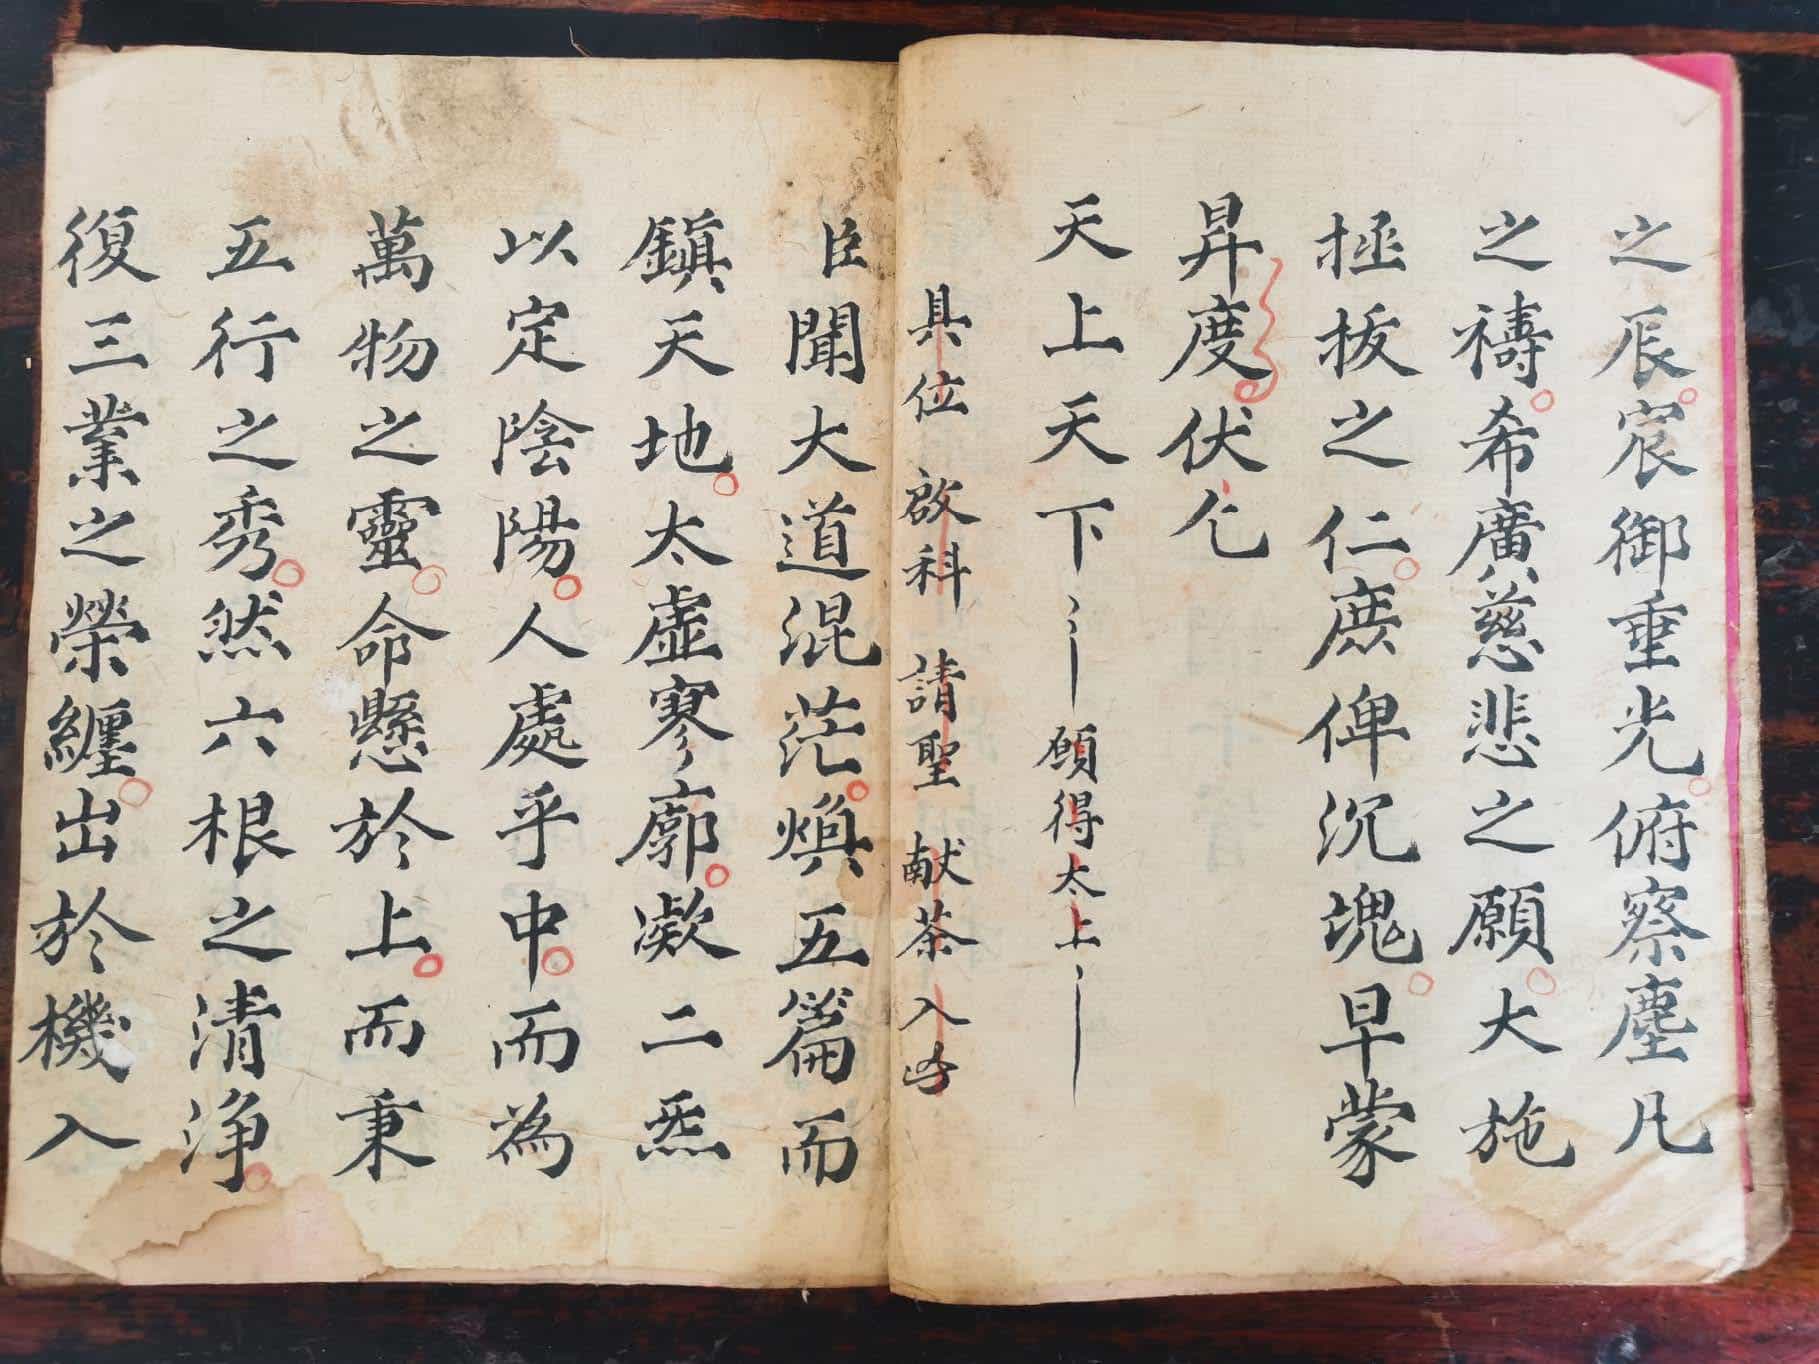 之辰宸御垂光俯察塵凡
之禱希廣慈悲之願大施
拯拔之仁庶俾沉魂早蒙
昇度伏乞
天上天下 願得太上
具位 啟科 請聖 献茶 入
臣聞大道混茫煥五篇而
鎮天地太虛寥廓凝二炁
以定陰陽人處乎中而為
萬物之靈命懸於上而秉
五行之秀然六根之清淨
復三業之縈纏出於機入